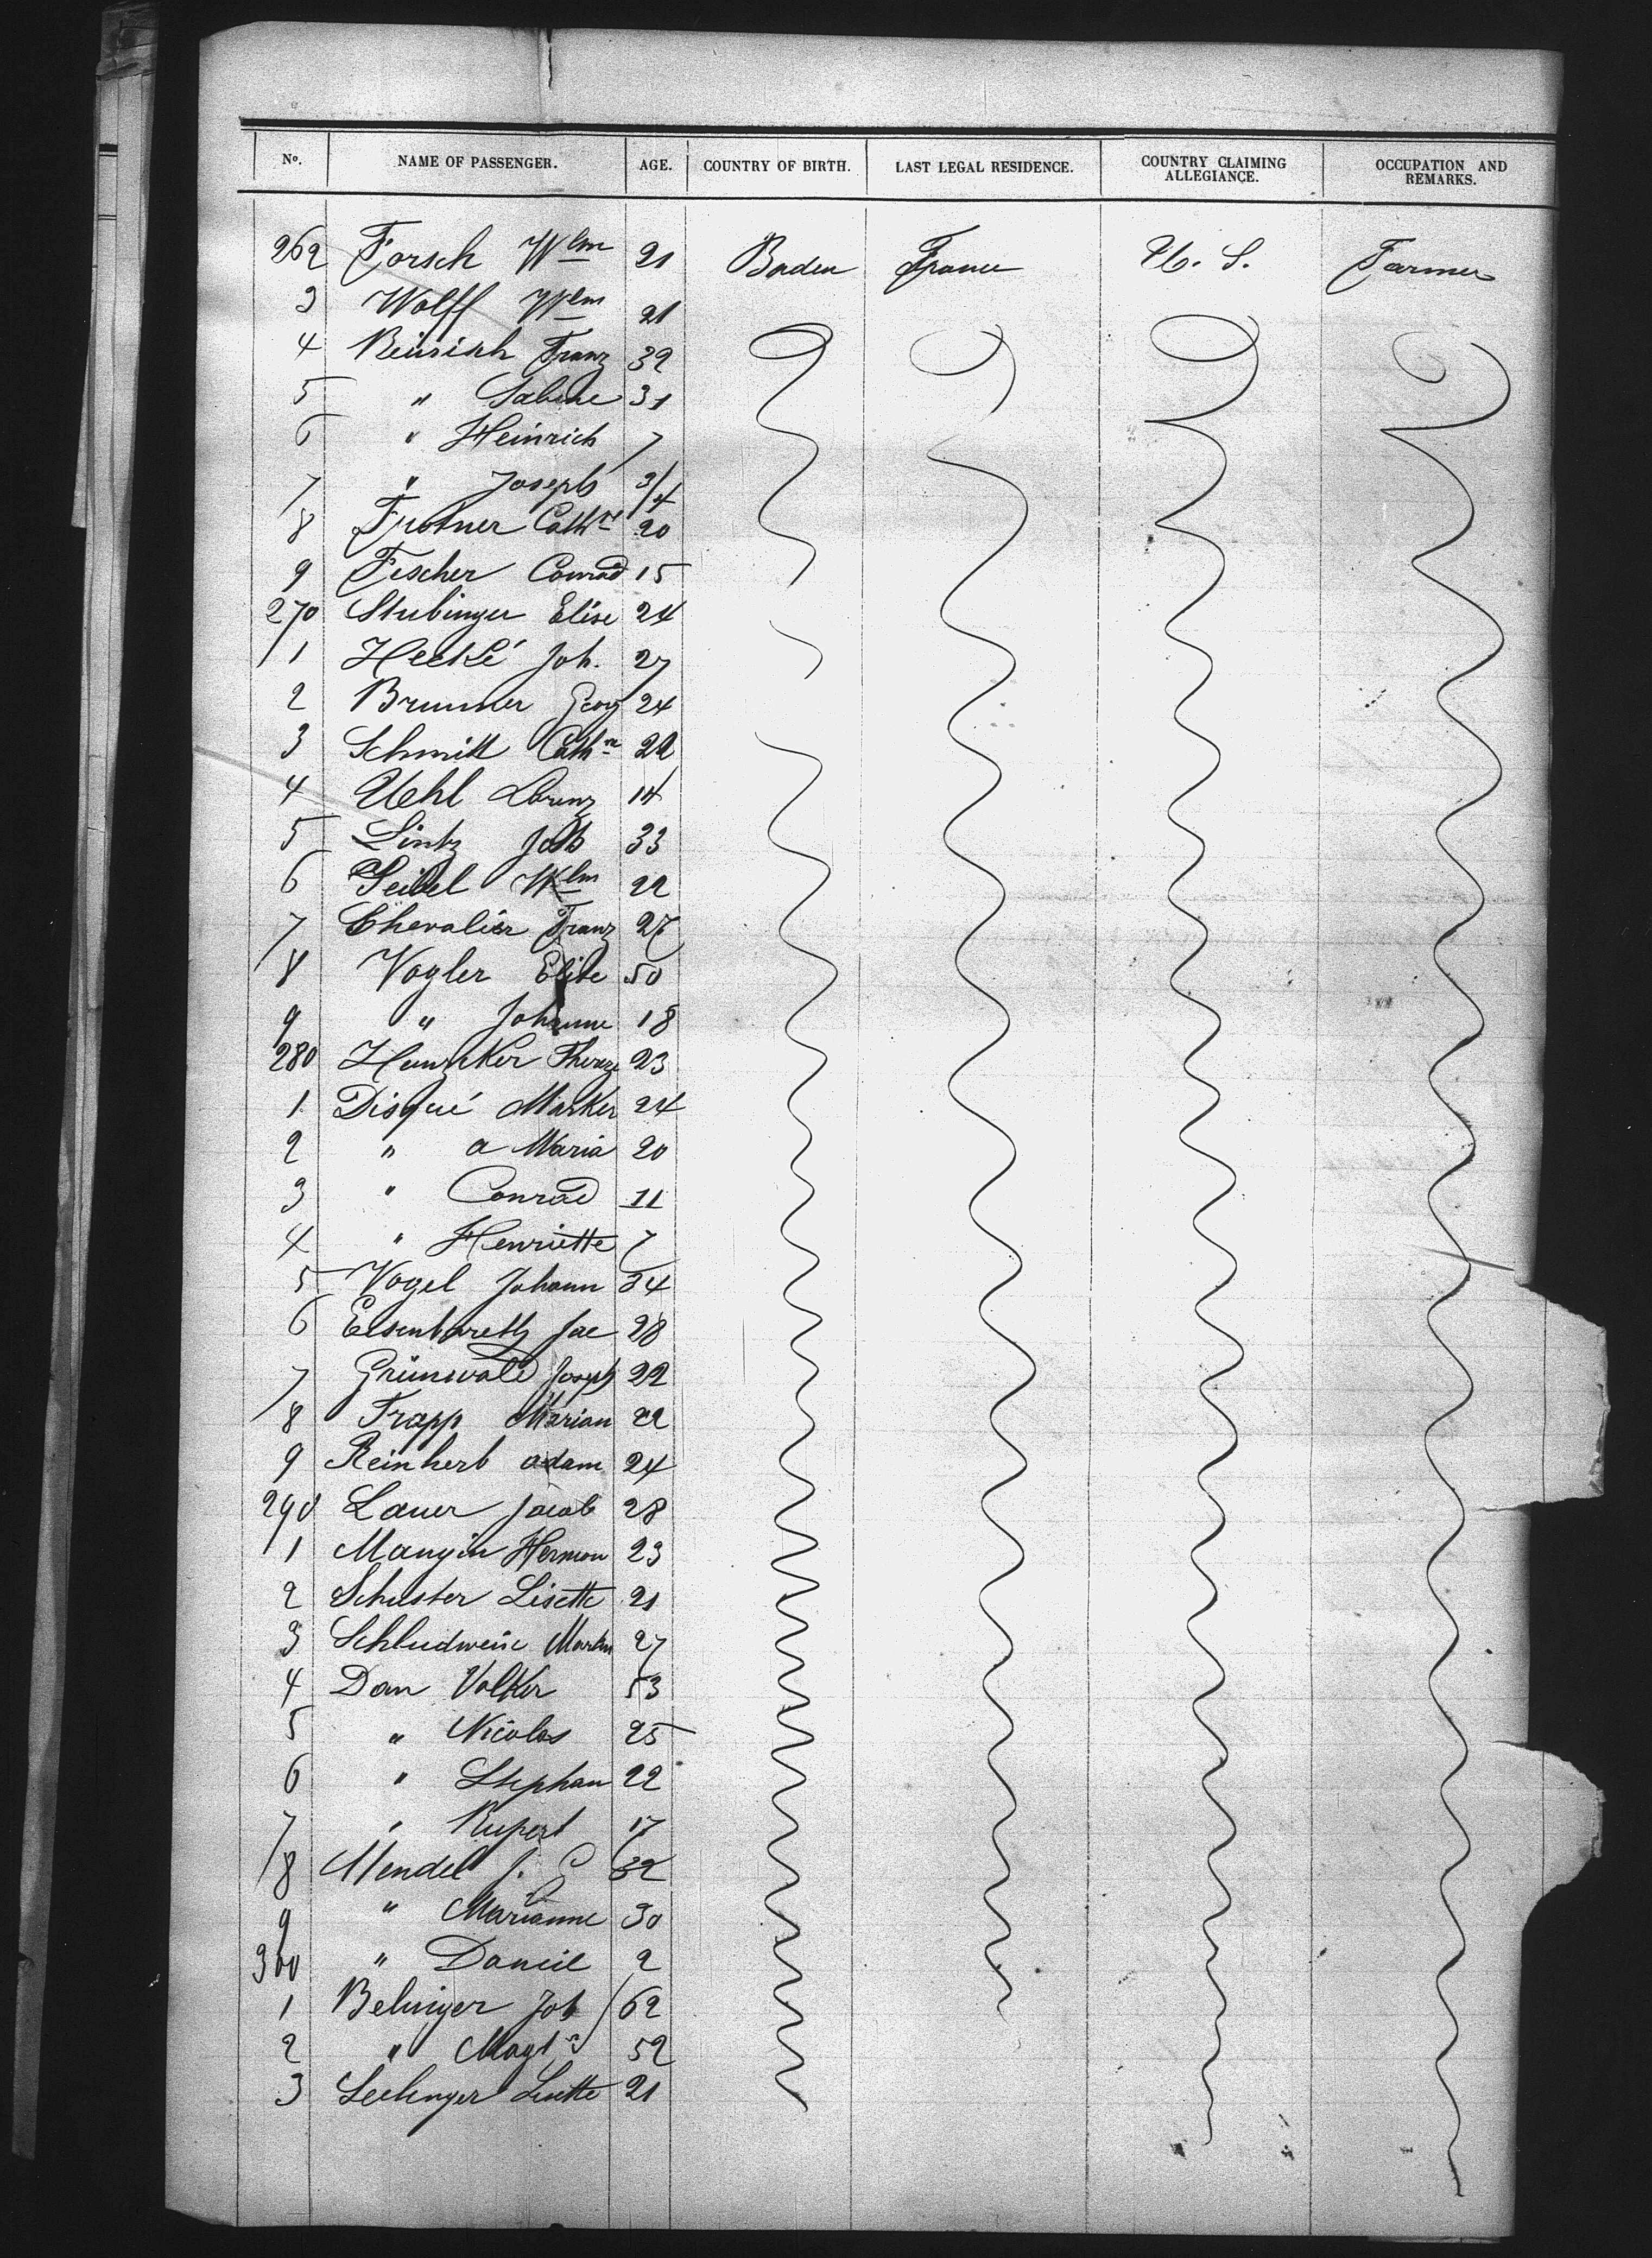 No. NAME OF PASSENGER. AGE. COUNTRY OF BIRTH. LAST LEGAL RESIDENCE. COUNTRY CLAIMING ALLEGIANCE. OCCUPATION AND REMARKS.
262 Forsch Wlm 21 Baden France U. S. Farmer
3 Wolff Wlm 21
4 Franz 32
5 " Sabine 31
6 " Heinrich 7
7 " Joseph 3/4
8 Cathne 20
9 Fischer Conrad 15
270 Stubinger Elise 24
1 Hecké Joh. 27
2 Brunner Georg 24
3 Schmitt Cathne 22
4 Uehl Lorenz 14
5 Lintz Joh 33
6 Seibel Wlm 22
7 Chevalier Franz 27
8 Vogler Elise 50
9 " Johanne 18
280 Hunziker 23
1 Disqué Marker 24
2 " a Maria 20
3 " Conrad 11
4 " Henriette 7
5 Vogel Johann 34
6 Eisenbareth Jac 28
7 Grünwald Joseph 22
8 Trapp Marian 22
9 Reinherb adam 24
290 Lauer Jacob 28
1 Mangin Herman 23
2 Schuster Lisette 21
3 Martin 27
4 Dan Volker 53
5 " Nicolas 25
6 " Stephan 22
7 " Rupert 17
8 Mendel J. 32
9 " Marianne 30
300 " Daniel 2
1 Belinger Joh 62
2 " Magtn 52
3 21